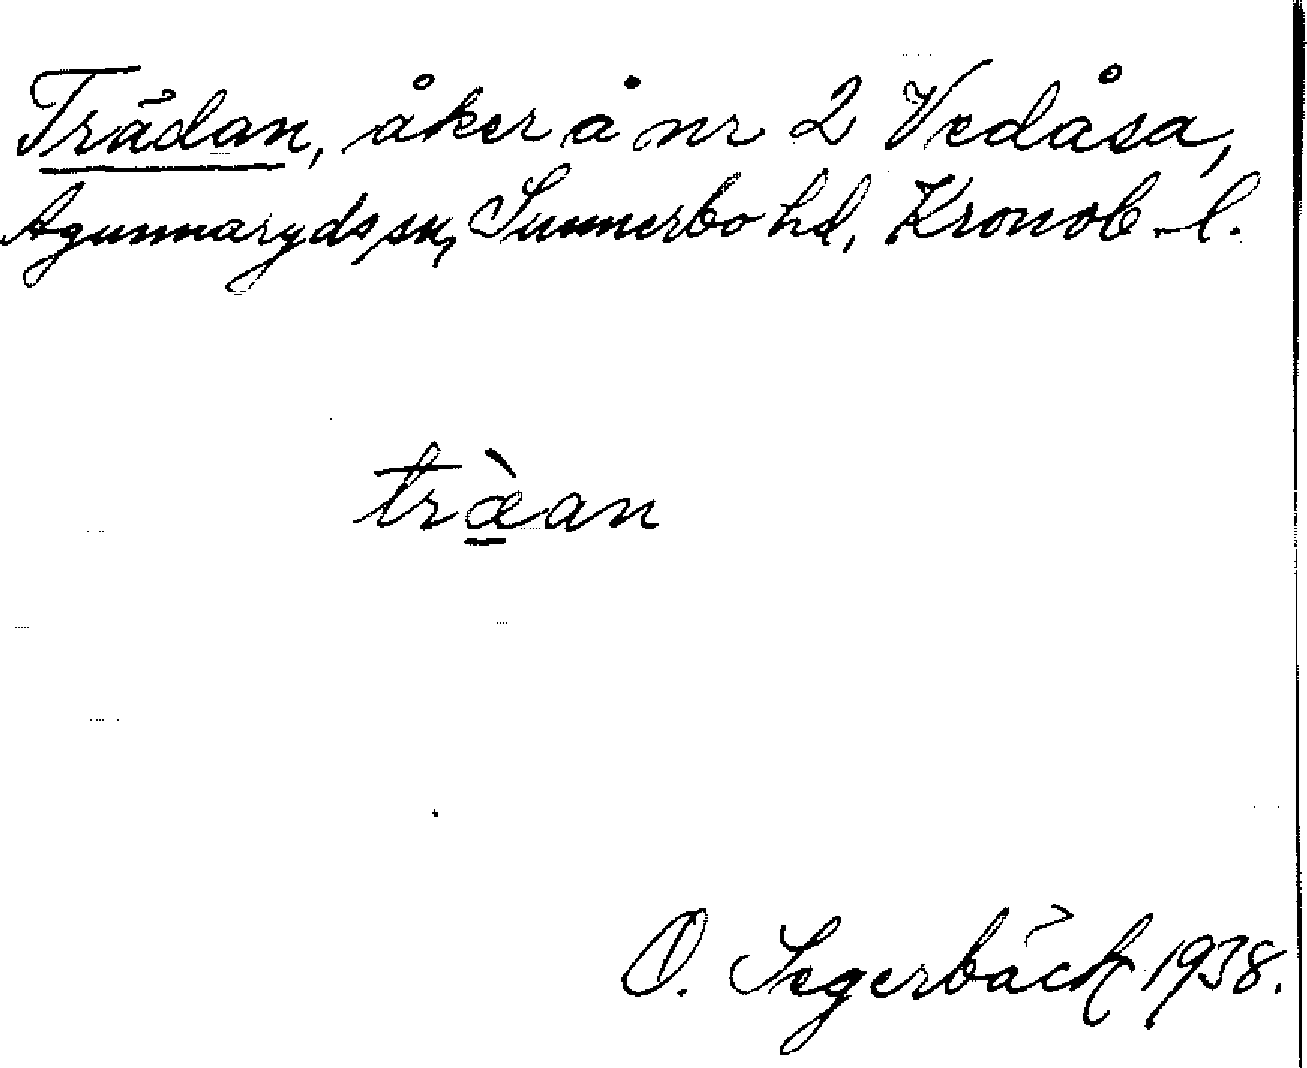 Trädan, åker å nr 2 Vedåsa,
Agunnaryds sn, Sunnerbo hd, Kronob. l.
træ̠̀an
O. Segerbäck 1938.